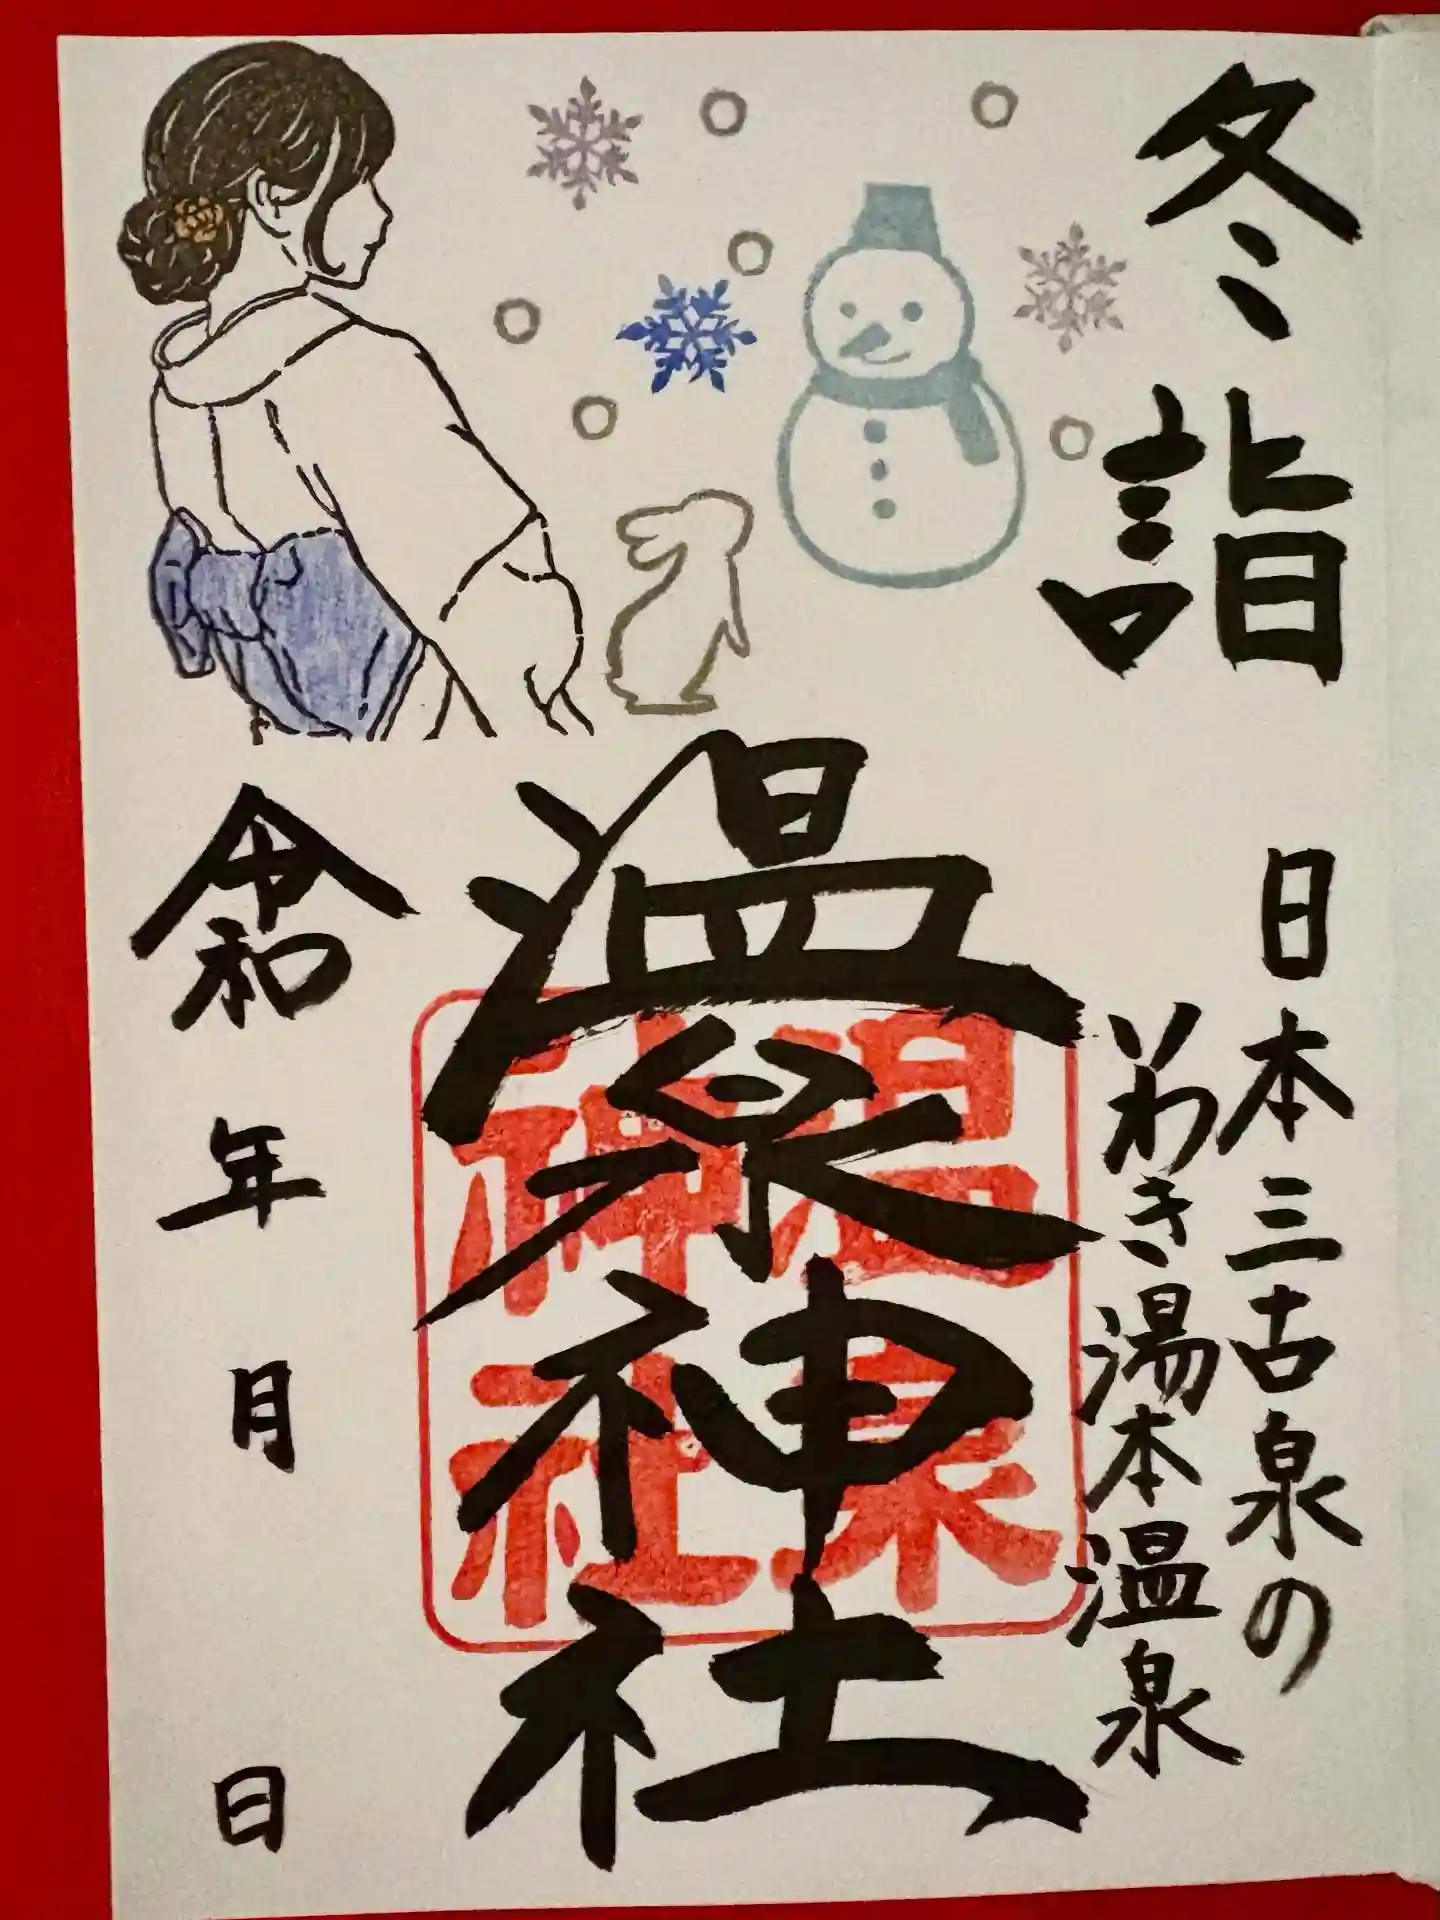 冬詣
日本三古泉の
いわき湯本温泉
温泉神社
温泉
神社
令和 年 月 日